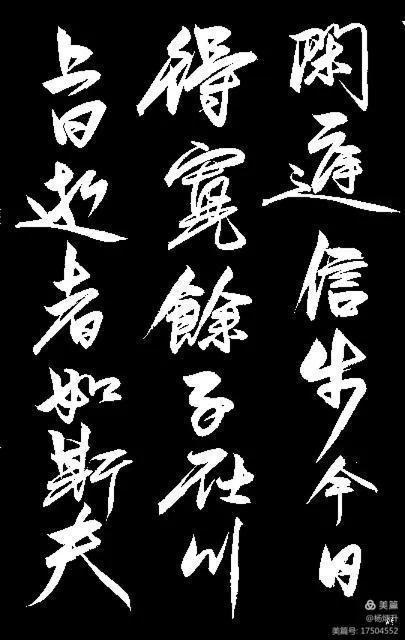 閑庭信步今日
得寬餘子在川
上曰逝者如斯夫
美篇
美篇号: 17504552